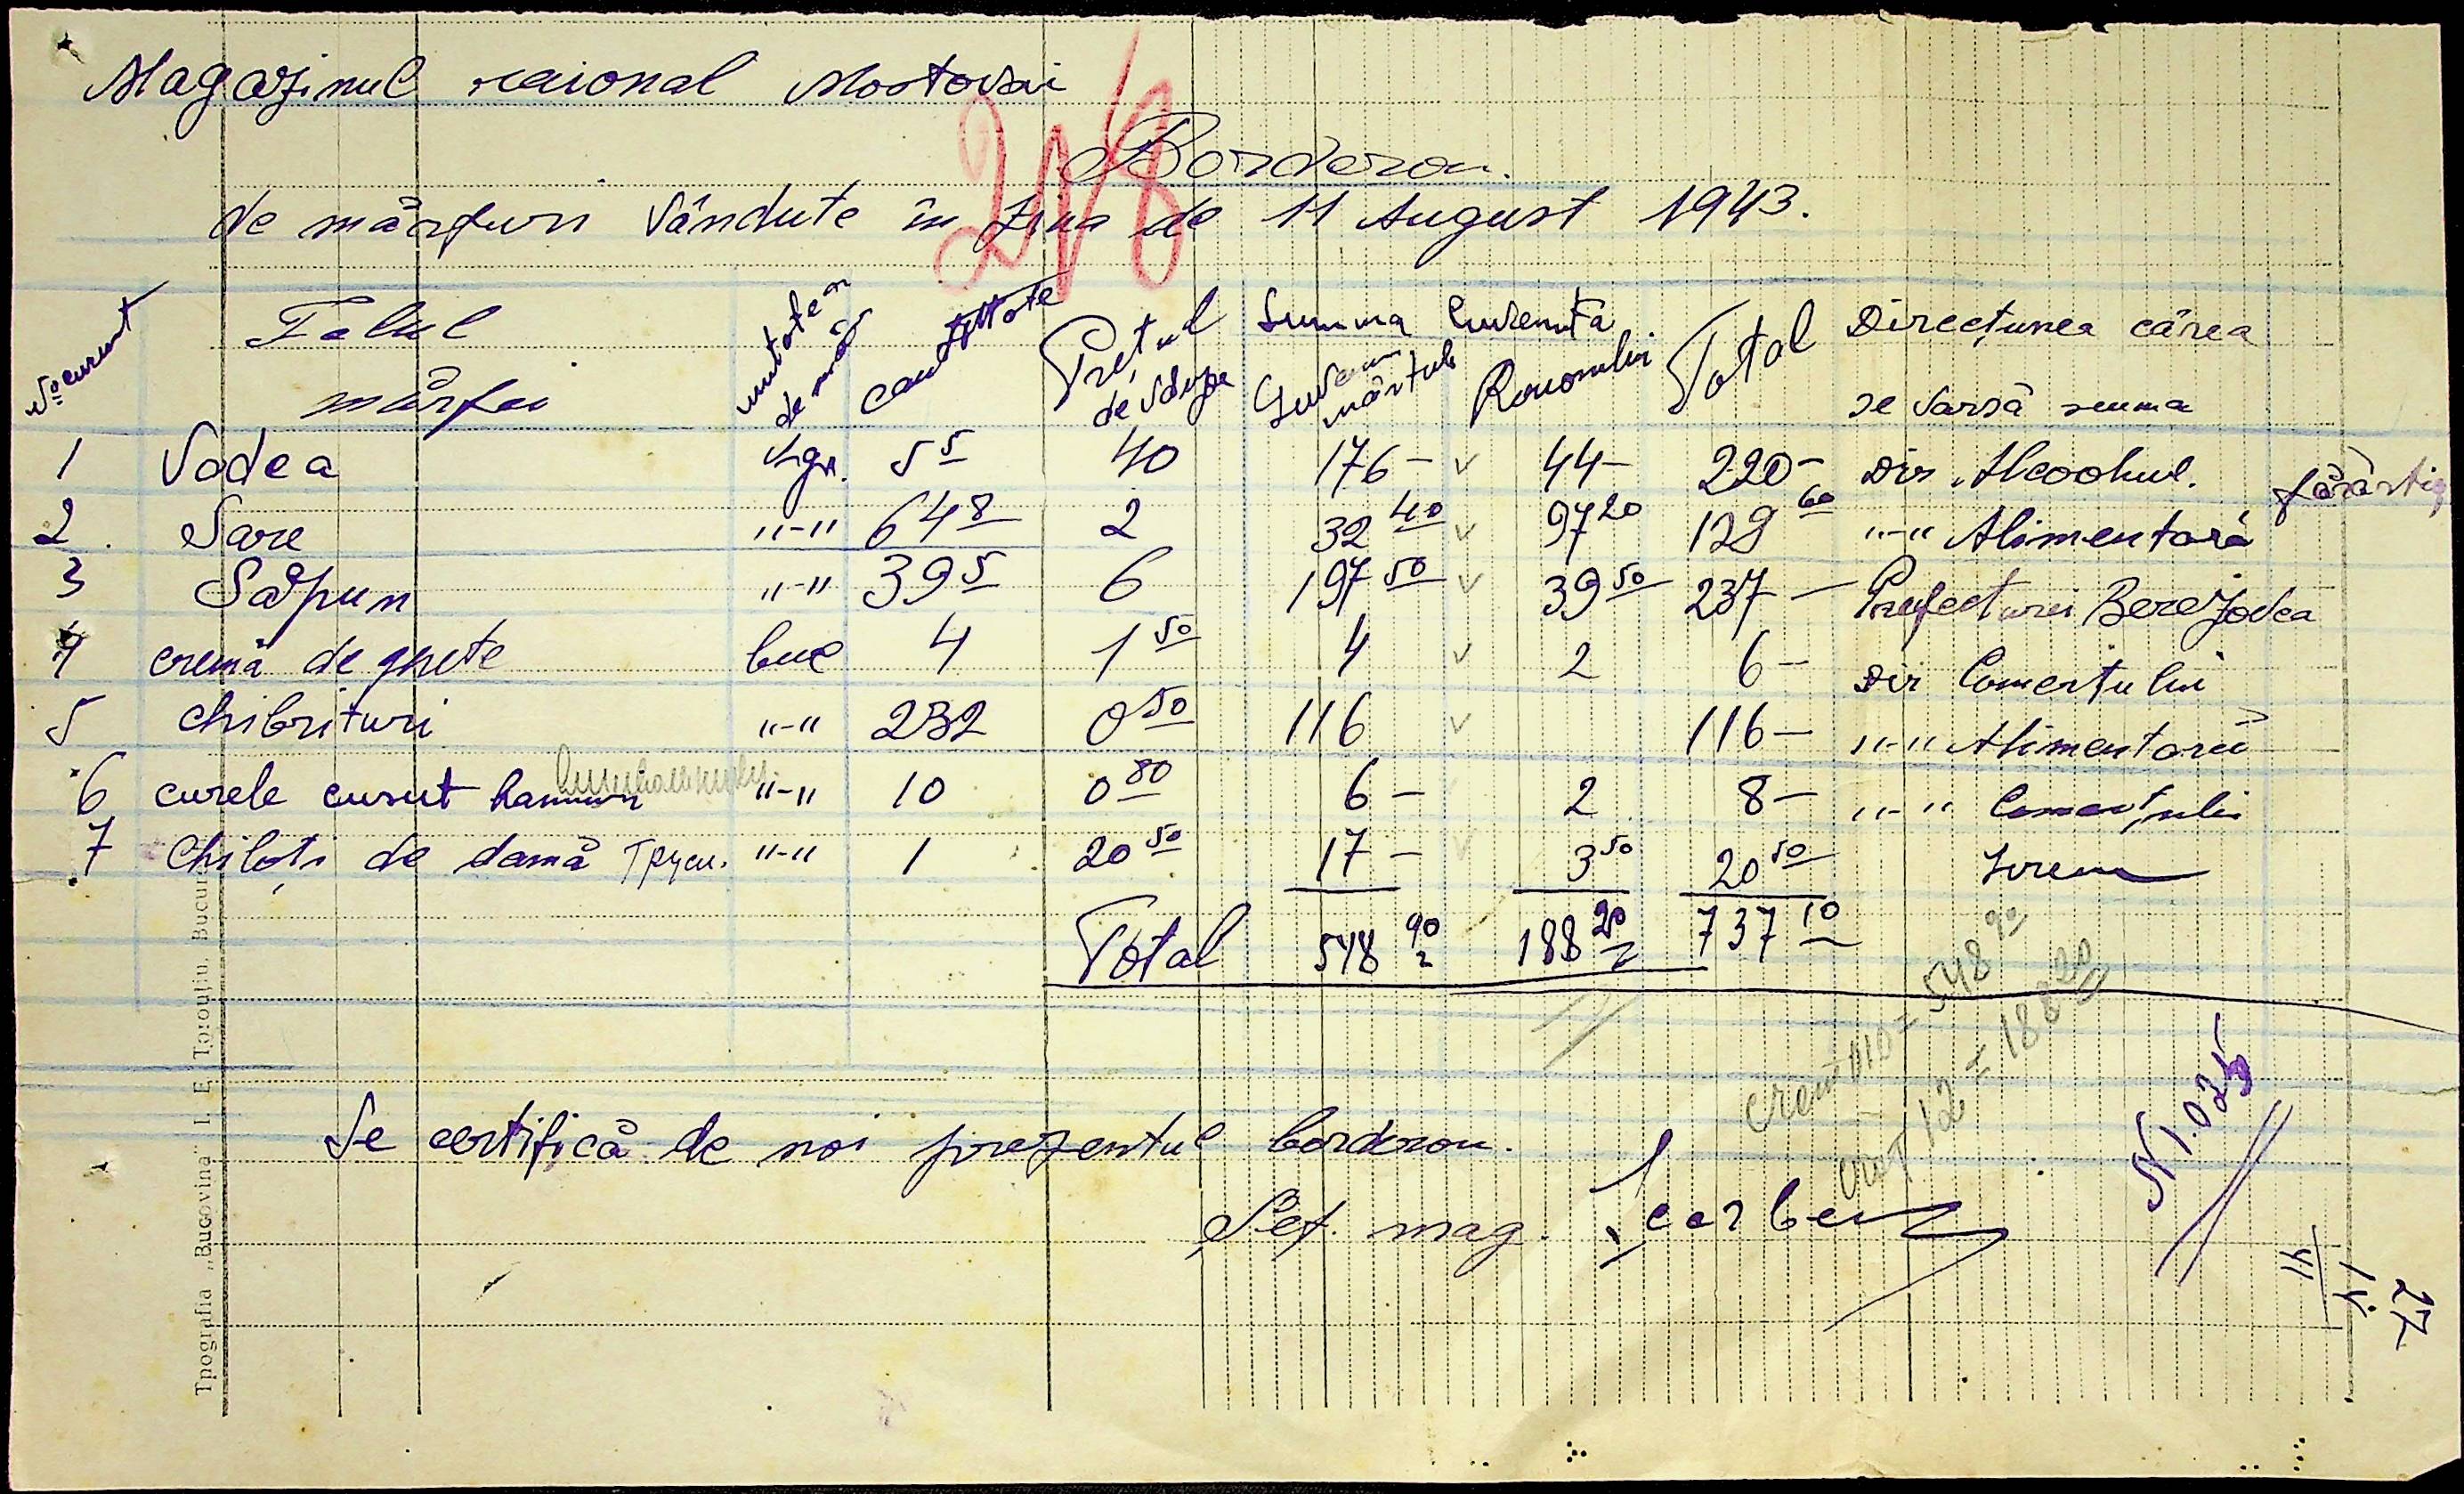 Magazinul raional Mostovoi
218
Borderou.
de mărfuri vândute în ziua de 11 August 1943.
No curent Felul mărfei unitatea de măs. cantitate Prețul de vânzare Summa Cuvenită Raionului Total Direcțunea cărea se varsă suma
1 Vodca kgr. 5 5 40 176 - v 44 - 220 - Dir. Alcoolul.
2. Sare "-" 64 8 2 32 40 v 97 20 129 60 "-" Alimentară
3 Săpun "-" 39 5 6 197 50 v 39 50 237 - Prefecturei Berezovca
4 cremă de ghete buc 4 1 50 4 v 2 6 - Dir Comerțului
5 chibrituri "-" 232 0 50 116 v 116 - "-" Alimentară
6 curele cusut "-" 10 0 80 6 - 2 8 - "-" Comerțului
7 Chiloți de damă Трусы. "-" 1 20 50 17 - v 3 50 20 50
Total 548 90 188 20 737 10
548 90
12 = 188 20
N 1.025
Se certifică de noi prezentul borderou.
Șef. mag.
27
Tipografia „Bucovina" I. E. Torouțiu, Bucur